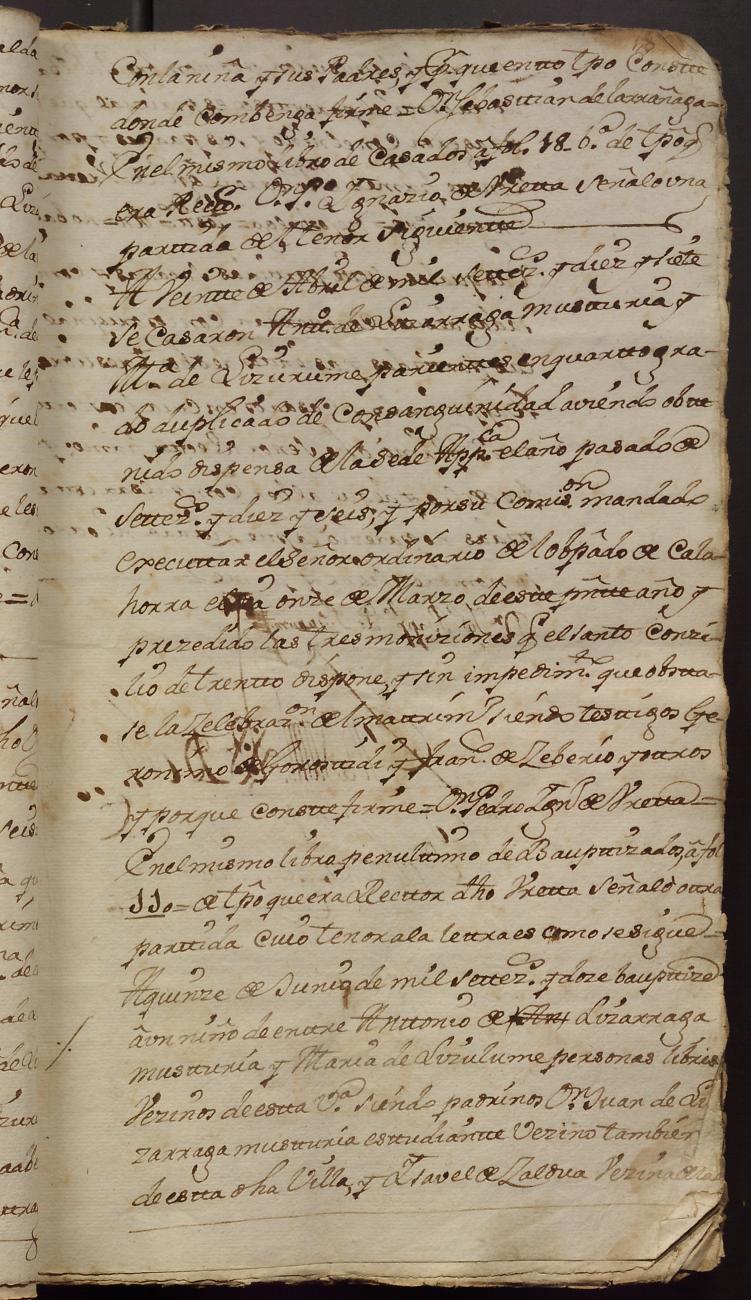 Con la niña y sus Padres, y Pª que en tto tpo Constte
donde Combenga firme = Dn Sebasttian de larrañaga =
En el mismo libro de Casados a fol. 18. bª de tpo q
era Recttor Dn Pº Ygnazio de Vretta señalo vna
parttida de el tenor siguiente
A Veintte de Abril de mil settezs. y diez y siette
se Casaron Antto. de Lizarraga mustturia y
Mª de Lizurume parienttes en quartto gra-
do duplicado de Consanguinidad aviendo obtte
nido dispensa de la sede Appca el año pasado de
settezs. y diez y seis, y por su Comison mandado
executtar el señor ordinario de el obpado de Cala-
horra el dia onze de Marzo de estte pntte año y
prezedido las tres moniziones q el santo Conzi-
lio de trentto dispone, y sin impedimto que obsta-
se la Zelebrazon. de el mattrimº siendo testtigos Ge-
ronimo de Gorosttidi y Franco. de Zeberio y ottros
y porque Constte firme = Dn Pedro Ygno de Vretta =
En el mismo libro penulttimo de Bapttizados, a fol
110 = de tpo que era Recttor dho Vretta señalo ottra
parttida cuio tenor a la lettra es como se sigue =
A quinze de Junio de mil settezs. y doze bapttize
a vn niño de enttre Anttonio de Lizarraga
mustturia y Maria de Lizulume personas libres
Vezinos de estta Vª. siendo padrinos Dn Juan de Li
zarraga mustturia esttudiantte Vezino tambien
de estta dha Villa, y Ysavel de Zaldua Vezina de la